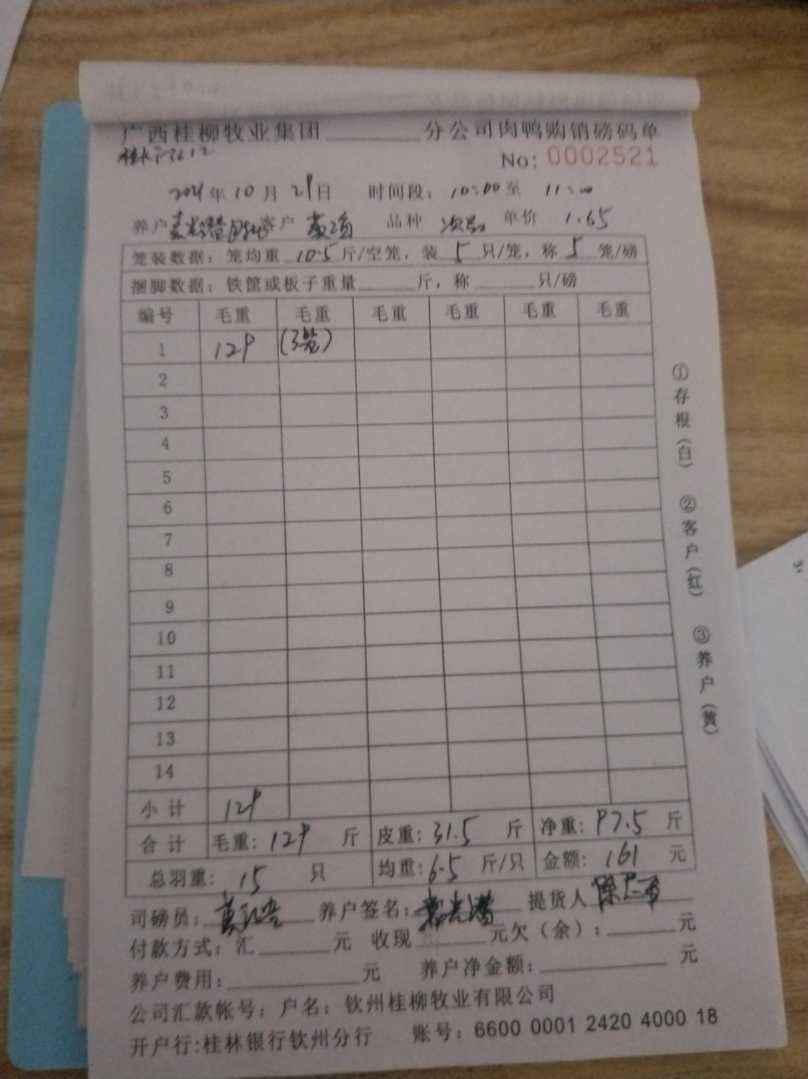 广西桂柳牧业集团______分公司肉鸭购销磅码单
No: 0002521
年10月29日 时间段：10:00至 11:00
养户 客户 品种 次品 单价 1.65
笼装数据：笼均重 10.5 斤/空笼，装 5 只/笼，称 5 笼/磅
捆脚数据：铁筐或板子重量______斤，称______只/磅
编号 毛重 毛重 毛重 毛重 毛重 毛重
1 129 (3笼)
2
3
4
5
6
7
8
9
10
11
12
13
14
小计 129
合计 毛重：129 斤 皮重：31.5 斤 净重：97.5 斤
总羽重：15 只 均重：6.5 斤/只 金额：161 元
司磅员： 养户签名： 提货人
付款方式：汇______元 收现______元欠（余）：______元
养户费用：______元 养户净金额：______元
公司汇款帐号：户名：钦州桂柳牧业有限公司
开户行:桂林银行钦州分行 账号：6600 0001 2420 4000 18
①存根（白） ②客户（红） ③养户（黄）